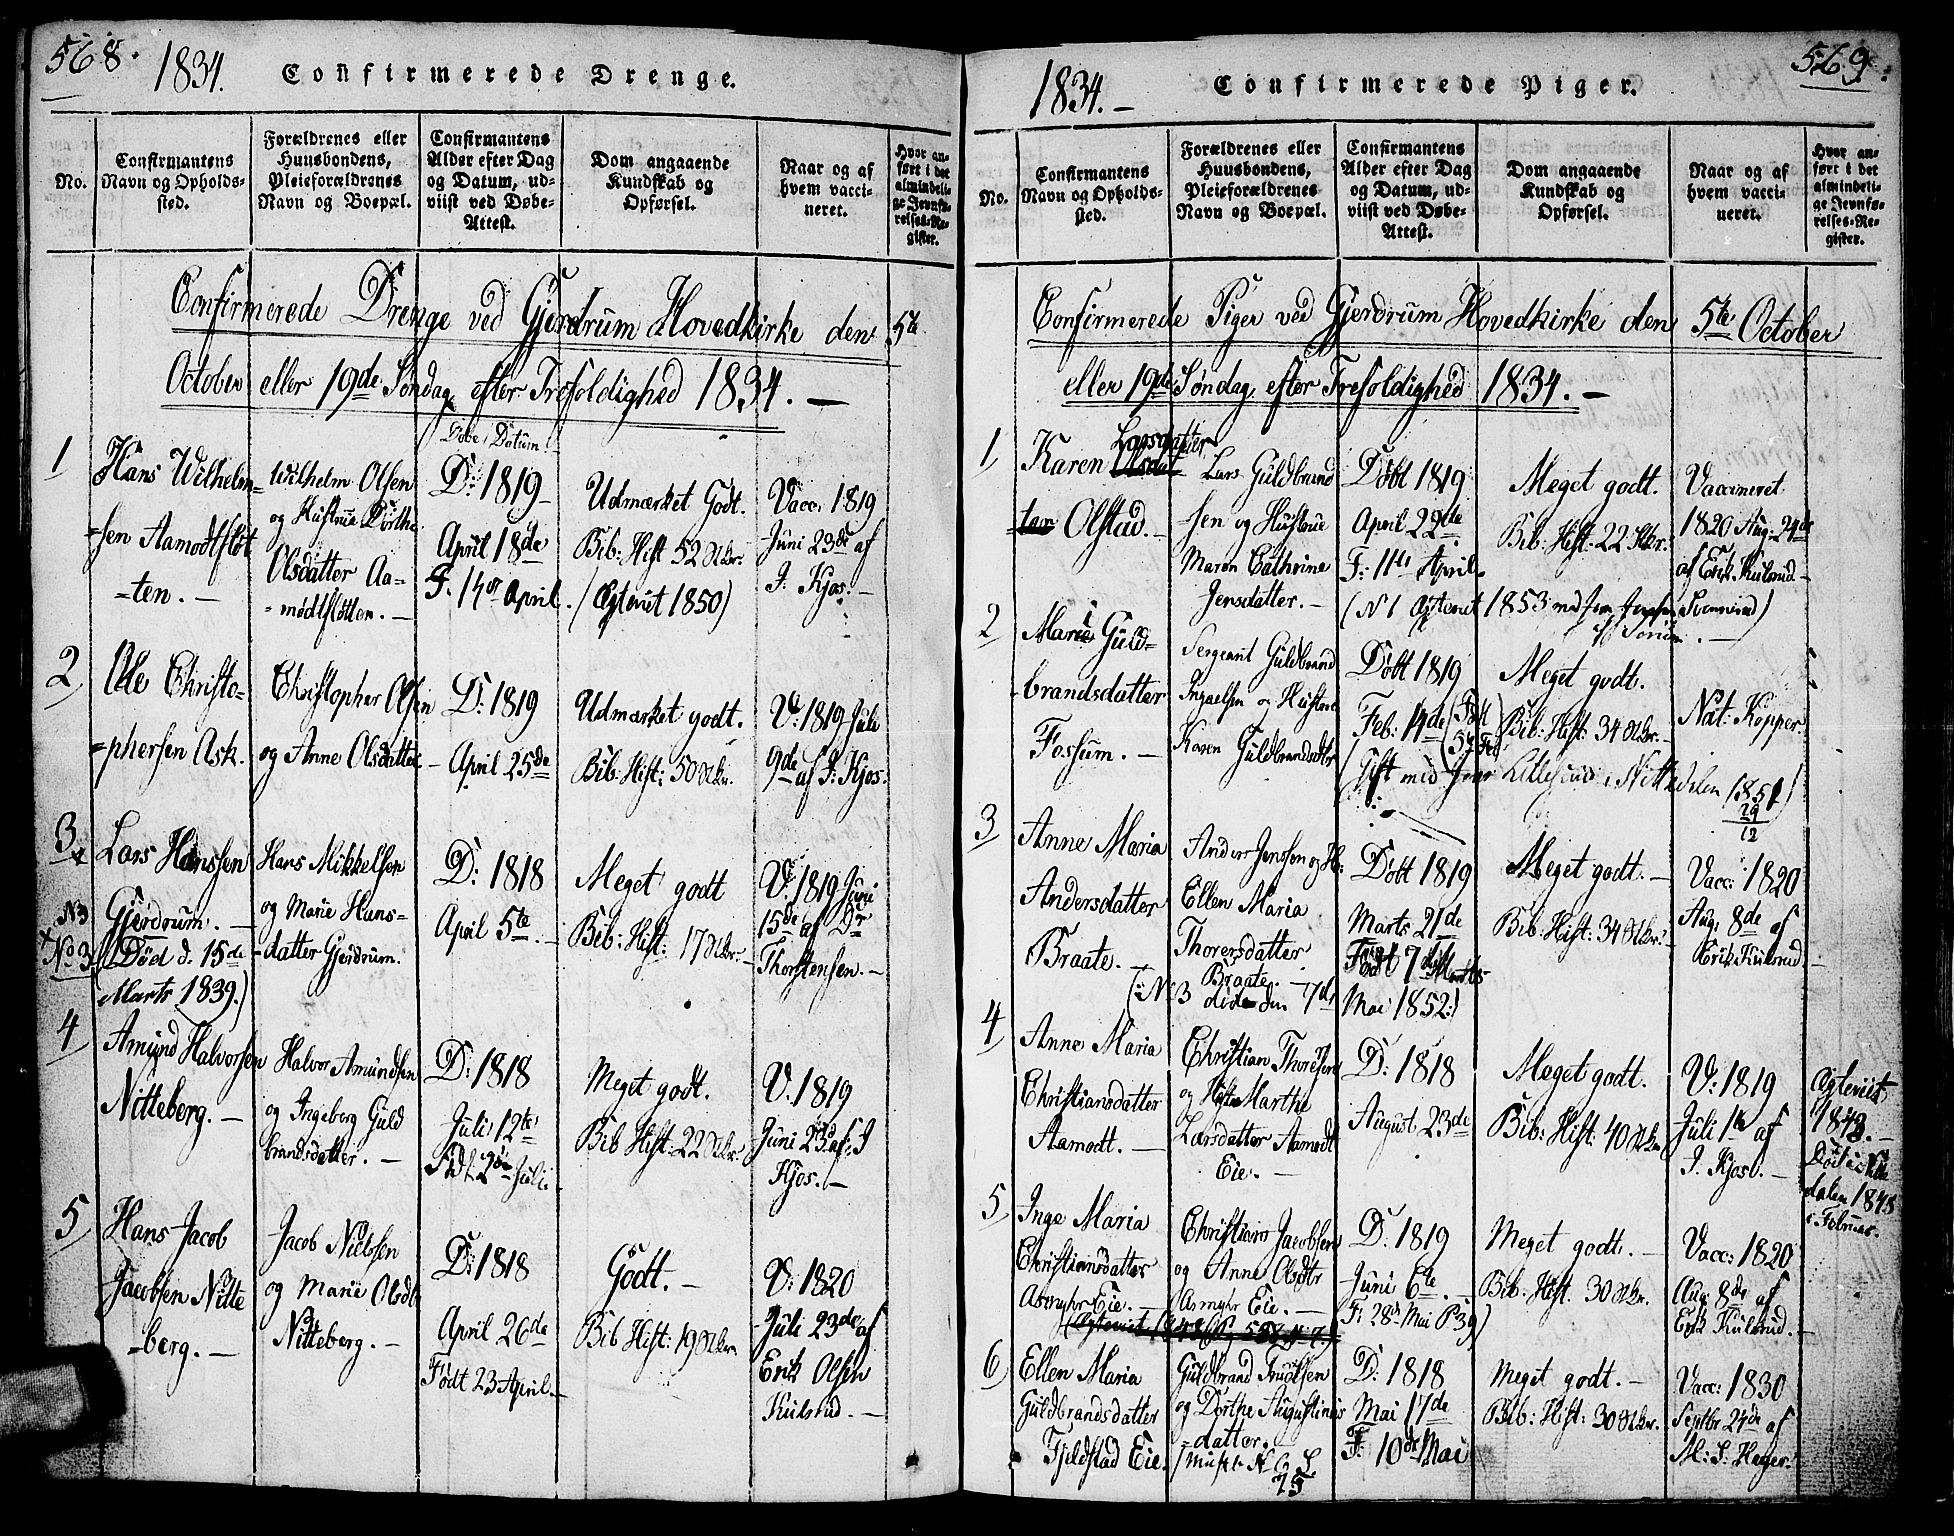 568.
1834.
Confirmerede Drenge.
No.
Confirmantens
Navn og Opholds-
sted.
Forældrenes eller
Huusbondens,
Pleieforældrenes
Navn og Boepæl.
Confirmantens
Alder efter Dag
og Datum, ud-
viist ved Døbe-
Attest.
Dom angaaende
Kundskab og
Opførsel.
Naar og af
hvem vacci-
neret.
Hvor an-
ført i det
almindeli-
ge Jevnfø-
relses-Re-
gister.
Confirmerede Drenge ved Gjerdrum Hovedkirke den 5te
October eller 19de Søndag efter Trefoldighed 1834. —
Døbe Datum
1
Hans Wilhelm-
-sen Aamodtfløt
-ten. —
Wilhelm Olsen
og Hustrue Dorthe
Olsdatter Aa-
-modtfløtten. —
D: 1819
April 18de
F. 14de April.
Udmærket Godt.
Bib: Hist 52 Stkr.
(Ægteviet 1850)
Vacc: 1819
Juni 23de af
J. Kjos. —
2
Ole Christo-
-phersen Ask.
Christopher Olsen
og Anne Olsdatter
D: 1819
April 25de
Udmærket godt.
Bib: Hist: 50 Stkr.
V: 1819 Juli
9de af J. Kjos.
3
Lars Hanssen
Gjerdrum. —
No 3
(Død d. 15de
Marts 1839.)
Hans Mikkelsen
og Marie Hans-
-datter Gjerdrum.
D: 1818
April 5te. —
Meget godt
Bib: Hist: 17 Stkr. —
V: 1819 Juni
15de af Dr
Thorstensen. —
4
Amund Halvorsen
Nitteberg. —
Halvor Amundsen
og Ingeborg Guld
brandsdatter. —
D: 1818
Juli 12te
Født 2den Juli.
Meget godt.
Bib Hist: 22 Stkr.
V. 1819
Juni 23 af J
Kjos. —
5
Hans Jacob
Jacobsen Nitte
-berg. —
Jacob Nielsen
og Marie Olsdtr
Nitteberg. —
D: 1818
April 26de
Født 23 April. —
Godt. —
Bib Hist: 19 Stkr.
V: 1820
Juli 23de af
Erik Olsen
Kulsrud. —
569.
1834. —
Confirmerede Piger.
No.
Confirmantens
Navn og Opholds-
sted.
Forældrenes eller
Huusbondens,
Pleieforældrenes
Navn og Boepæl.
Confirmantens
Alder efter Dag
og Datum, ud-
viist ved Døbe-
Attest.
Dom angaaende
Kundskab og
Opførsel.
Naar og af
hvem vacci-
neret.
Hvor an-
ført i det
almindeli-
ge Jevnfø-
relses-Re-
gister.
Confirmerede Piger ved Gjerdrum Hovedkirke den 5te October
eller 19de Søndag efter Trefoldighed 1834. —
1
Larsdatter
Karen Olsdat
ter Olstad. —
Lars Guldbrand
-sen og Hustrue
Maren Cathrine
Jensdatter. —
Døbt 1819
April 22de
F: 11te April
Meget godt.
Bib: Hist: 22 Stkr.
Vaccineret
1820 Aug: 24de
af Erik Kulsrud. —
(N 1 Ægteviet 1853 med
2
Marie Guld-
-brandsdatter
Fossum. —
Sergeant Guldbrand
og Hustrue
Karen Guldbrandsdtr
Døbt 1819
Feb: 14de (Født
5te Feb)
Meget godt.
Bib: Hist: 34 Stkr. —
Nat: Kopper.
(Gift med Lillesrud i Nittedalen 1851)
29
12
3
Anne Maria
Andersdatter
Braate. —
Anders Jenssen og H:
Ellen Maria
Thorersdatter
Braate. —
Døbt 1819
Marts 21de
Født 7de Marts
Meget godt. —
Bib: Hist: 34 Stkr. —
Vacc: 1820
Aug: 8de af
Erik Kulsrud. —
(: N 3 døde den 7de Mai 1852:)
4
Anne Maria
Christiansdatter
Aamodt. —
Christian Thoresen
og Hustr Marthe
Larsdatter Aamodt
Eie. —
D: 1818
August 23de
Meget godt.
Bib: Hist: 40 Stkr.
V: 1819
Juli 1te af
J. Kjos. —
Ægteviet
1843. —
Død i Nitte
dalen 1845
i Februar.
5
Inge Maria
Christiansdatter
Asmyhr Eie. —
Christian Jacobsen
og Anne Olsdtr
Asmyhr Eie. —
D: 1819
Juni 6te. —
F: 28de Mai P 39)
Meget godt. —
Bib: Hist. 30 Stkr.
Vacc: 1820
Aug: 8de af
Erik Kulsrud. —
6
Ellen Maria
Guldbrandsdatter
Fjeldstad Eie.
Guldbrand Knudsen
og Dorthe Augustinus
-datter. —
D: 1818
Mai 17de
F: 10de Mai
Meget godt. —
Bib: Hist: 30 Stkr.
Vacc: 1830
Septbr 24de af
M: S: Heyer.